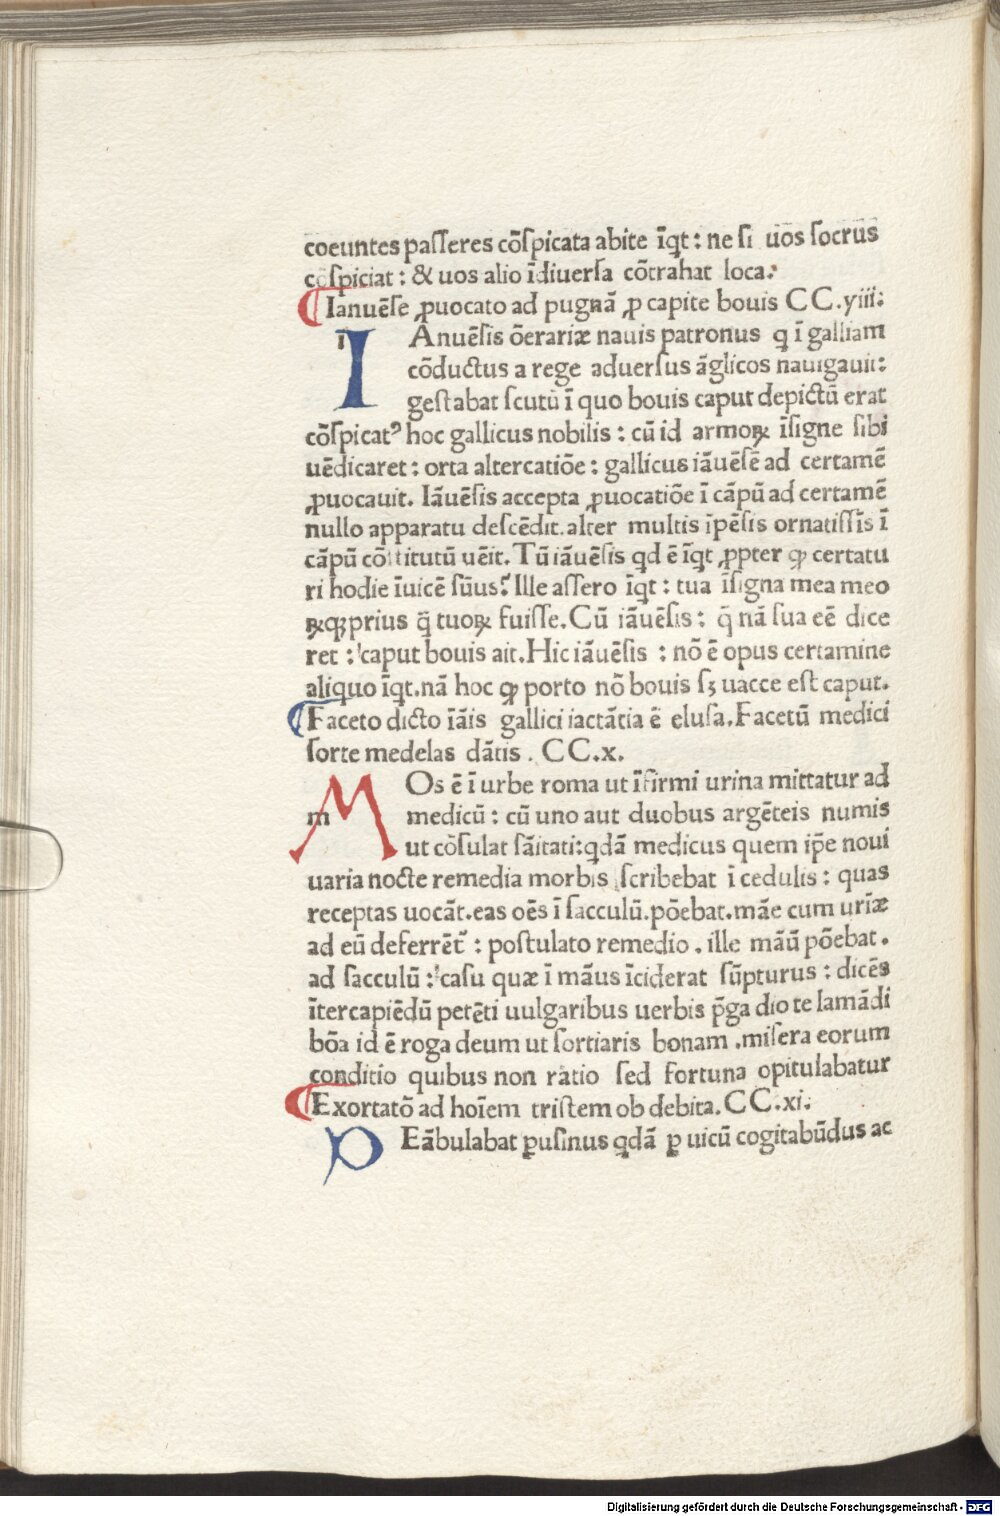 coeuntes paſſeres cōſpicata abite īqt : ne ſi uos ſocrus
cōſpiciat : & uos alio īdiuerſa cōtrahat loca.
Ianuēſe ꝓuocato ad pugnā ꝓ capite bouis CC.yiii.
i IAnuēſis ōerariæ nauis patronus q ī galliam
cōductus a rege aduerſus āglicos nauigauit :
geſtabat ſcutū ī quo bouis caput depictū erat
cōſpicatꝰ hoc gallicus nobilis : cū id armoꝝ īſigne ſibi
uēdicaret : orta altercatiōe : gallicus iāuēſē ad certamē
ꝓuocauit. Iāuēſis accepta ꝓuocatiōe ī cāpū ad certamē
nullo apparatu deſcēdit. alter multis īpēſis ornatiſſīs ī
cāpū cōſtitutū uēit. Tū iāuēſis qd ē īqt ꝓpter ꝙ certatu
ri hodie īuicē ſūus? Ille aſſero īqt : tua īſigna mea meo
ꝝꝙ prius q̄ tuoꝝ fuiſſe. Cū iāuēſis : q̄ nā ſua eē dice
ret : caput bouis ait. Hic iāuēſis : nō ē opus certamine
aliquo īqt. nā hoc ꝙ porto nō bouis ſꝫ uacce eſt caput.
Faceto dicto īāis gallici iactātia ē eluſa. Facetū medici
ſorte medelas dātis . CC.x.
m MOs ē ī urbe roma ut īfirmi urina mittatur ad
medicū : cū uno aut duobus argēteis numis
ut cōſulat ſāitati : qdā medicus quem ip̄e noui
uaria nocte remedia morbis ſcribebat ī cedulis : quas
receptas uocāt. eas oēs ī ſacculū. pōebat. māe cum urīæ
ad eū deferrēt᷑ : poſtulato remedio . ille māū pōebat.
ad ſacculū : caſu quæ ī māus īciderat ſūpturus : dicēs
ītercapiēdū petēti uulgaribus uerbis p̄ga dio te lamādi
bōa id ē roga deum ut ſortiaris bonam . miſera eorum
conditio quibus non ratio ſed fortuna opitulabatur
Exortatō ad hoīem triſtem ob debita. CC.xi.
PEābulabat ꝑuſinus qdā ꝑ uicū cogitabūdus ac
Digitalisierung gefördert durch die Deutsche Forschungsgemeinschaft - DFG